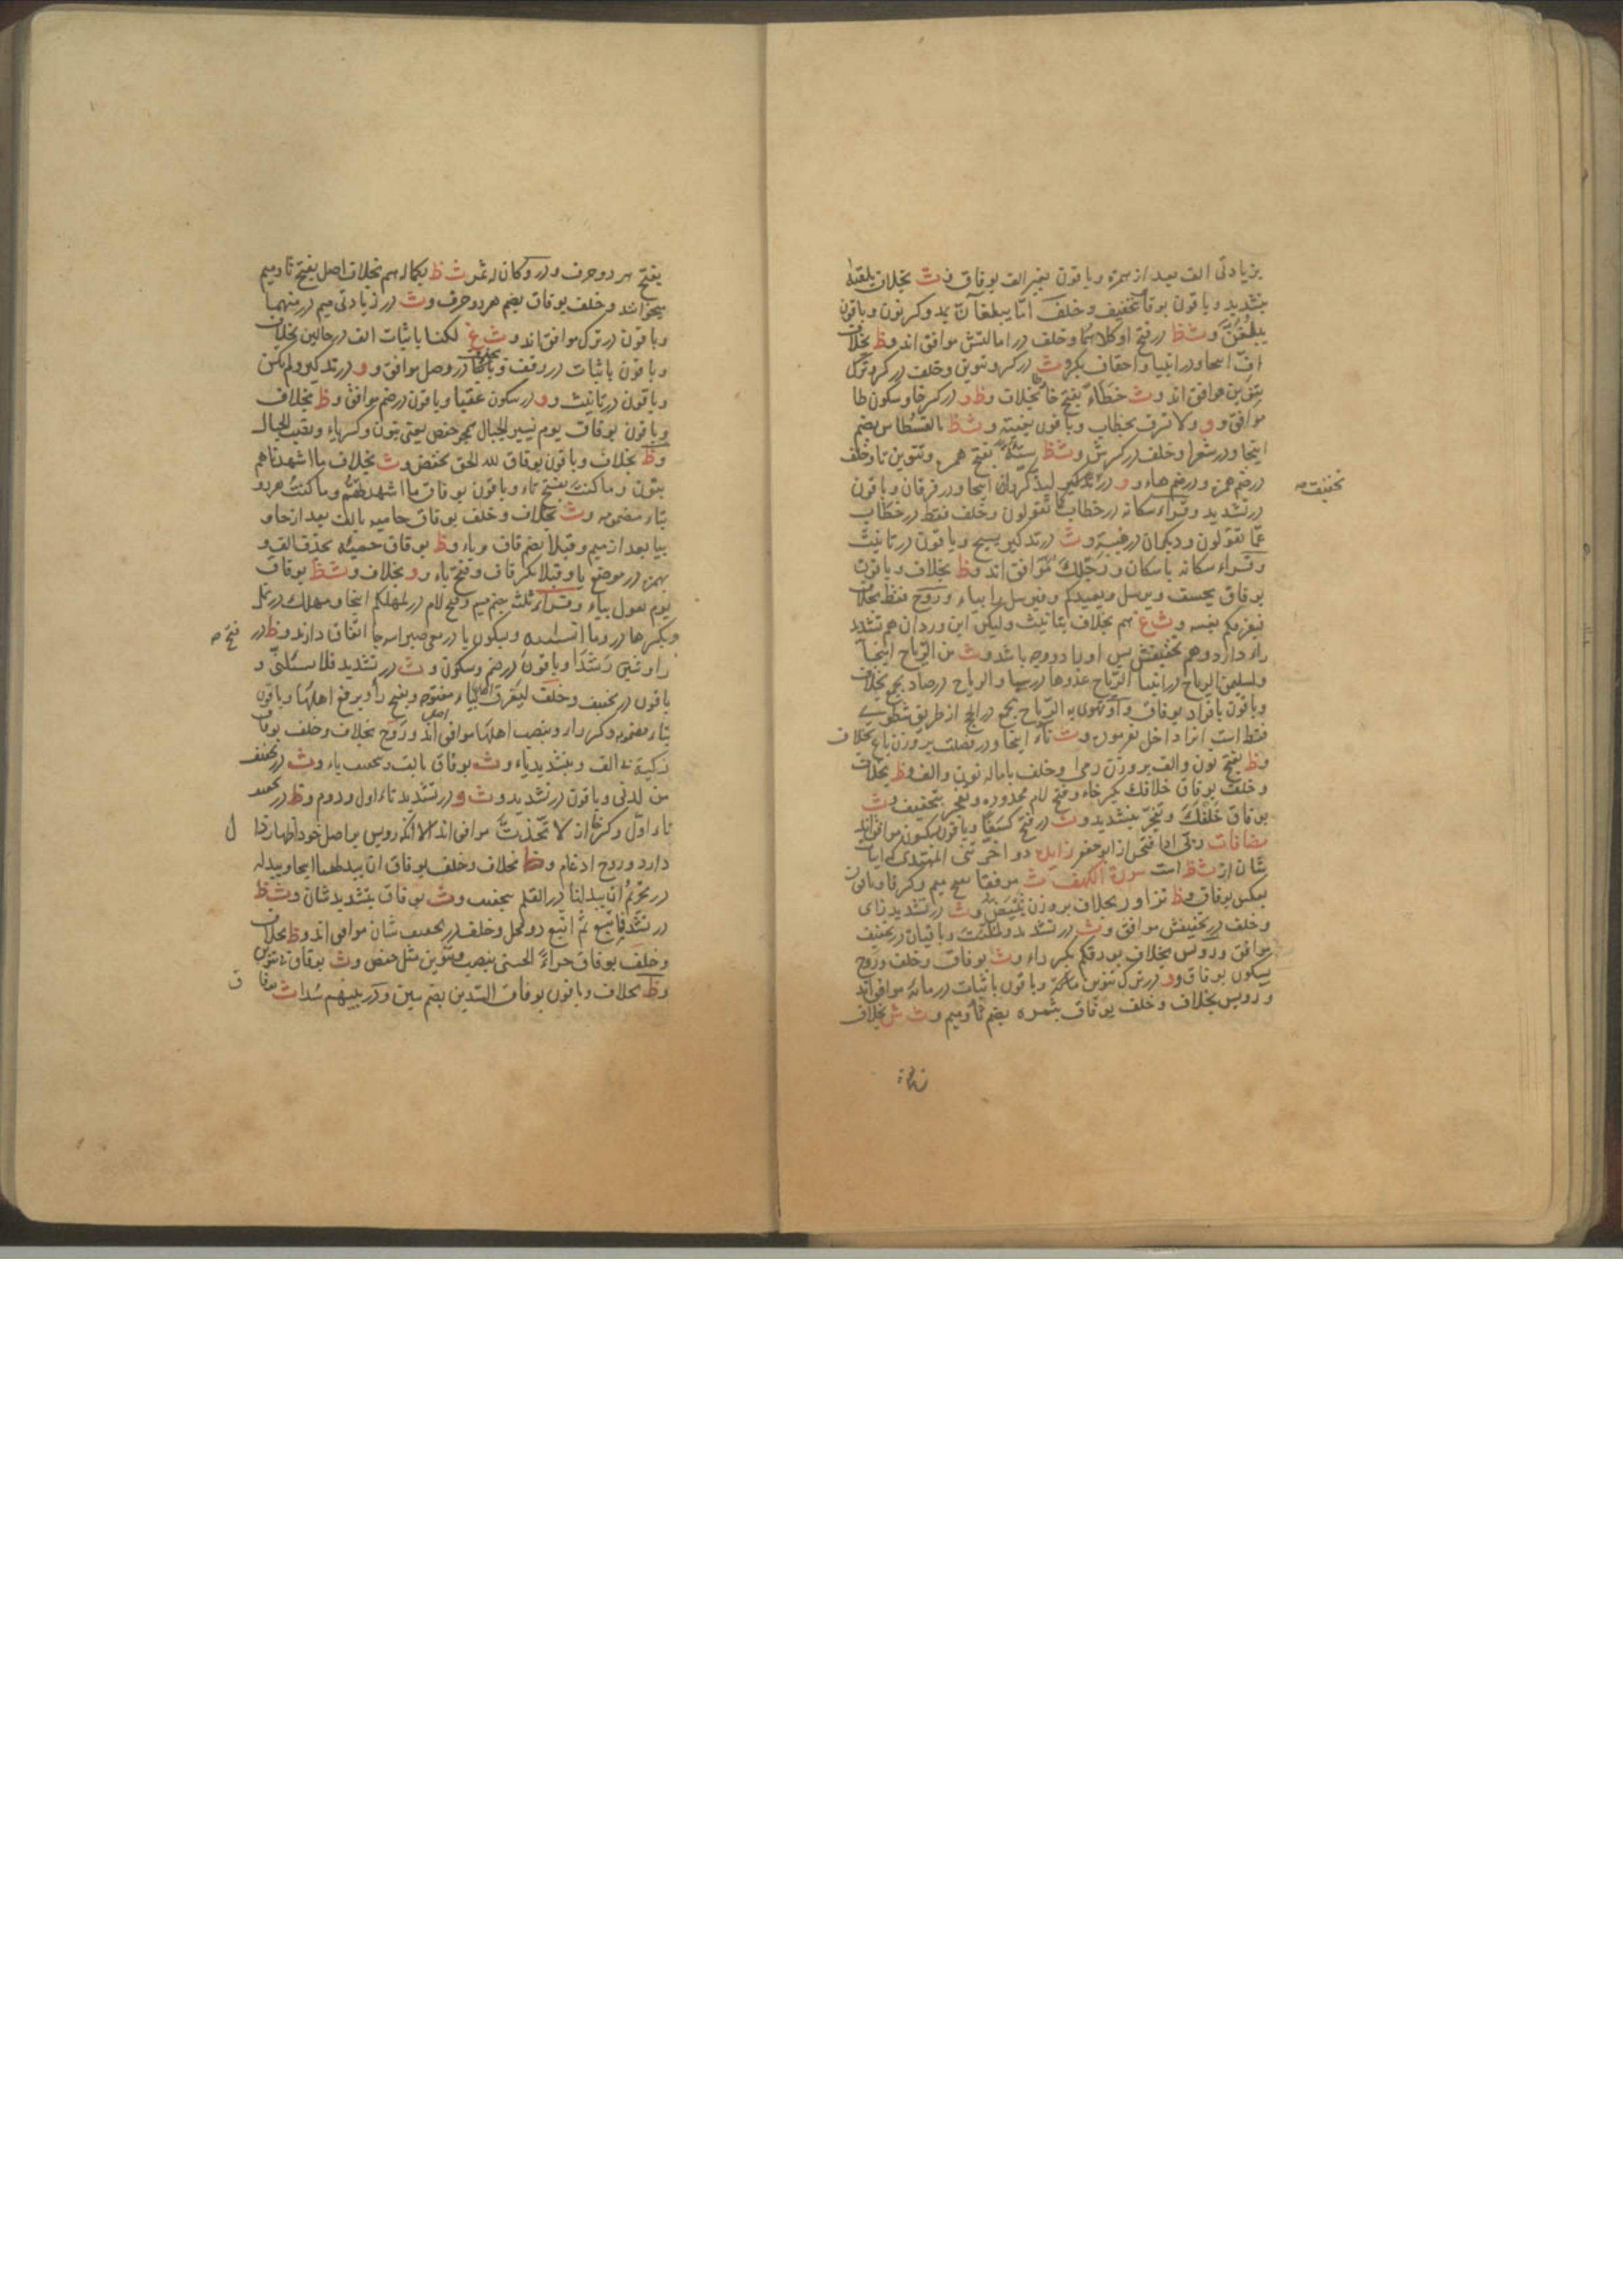 بزیادتی الف بعد از همزه و باقون بغیر الف بوفاق و ث بخلاف یلقیه
بتشدید و باقون بوفاق بتخفیف و خلف اما یبلغان بمد و کسر نون و باقون
یبلغن و ث ظ در فتح او کلاهما و خلف در امالتش موافق اند و ظ بخلاف
اف اینجا و در انبیا و احقاف بکسر و ث در کسر و تنوین و خلف در کسر و ترک
تنوین موافق اند و ث خطاء بفتح خا بخلاف و ظ و در کسر خا و سکون طا
موافق و و ولا تسرف بخطاب و باقون بغیبته و ث ظ بالقسطاس بضم
اینجا و در شعرا و خلف در کسرش و ث ظ سیئة بفتح همزه و تنوین تا و خلف
در ضم همزه و در ضم هاء و و در تذکیر لیذکروا اینجا و در فرقان و باقون
تخفیف صه
در تشدید و قراء سکانه در خطاب کما تقولون و خلف فقط در خطاب
عما تقولون و دیکران در غیبته و ث در تذکیر یسبح و باقون در تانیث
و قراء سکانه باسکان ورجلک موافق اند و ظ بخلاف و باقون
بوفاق یخسف و یرسل و یعیدکم و فیرسل را بیاء و روح فقط بخلاف
فیغرقکم بغیبه و ث غ هم بخلاف بتانیث ولیکن ابن وردان هم تشدید
راء دارد و هم تخفیفش پس او را دو وجه باشد و ث من الریاح اینجا
و لسلیمن الریاح در انبیا الریاح غدوها در سبا و الریاح در صاد بجمع بخلاف
و باقون بافراد بوفاق و او تهوی به الریاح بجمع در الحج از طریق شطوی
فقط است انرا داخل نفرمود و ث ناء اینجا و در فصلت بر وزن باع بخلاف
و ظ بفتح نون و الف بر وزن رمی و خلف باماله نون و الف و ظ بخلاف
و خلف بوفاق خلافک بکسر خاء و فتح لام ممدوده و تفجر بتخفیف و ث
بوفاق خلفک و تفجر بتشدید و ث در فتح کسفا و باقون بسکون موافق اند
مضافات ربی اذا فتحش از ابو جعفر زاید دو اخرتنی المهتدی اثبات
شان از ث ظ است سورة الکهف ث مرفقا بفتح میم و کسر فا و باقون
بعکس بوفاق و ظ تزاور بخلاف بر وزن تبیض و ث در تشدید زای
و خلف در تخفیفش موافق و ث در تشدید ولملئت و باقیان در تخفیف
موافق و رویس بخلاف بورقکم بکسر راء و ث بوفاق و خلف و روح
بسکون بوفاق و و در ترک تنوین مائة و باقون باثبات در مائة موافق اند
و رویس بخلاف و خلف بوفاق بثمره بضم ثا و میم و ث ش بخلاف
بفتح هر دو حرف و در و کان له ثمر ث ظ بکماله هم بخلاف اصل بفتح ثا و میم
میخوانند و خلف بوفاق بضم هر دو حرف و ث در زیادتی میم در منهما
و باقون در ترک موافق اند و ث غ لکنا باثبات الف در حالین بخلاف
و باقون باثبات در وقف و بحذف در وصل موافق و و در تذکیر ولم یکن
و باقون در تانیث و و در سکون عقبا و باقون در ضم موافق و ظ بخلاف
و باقون بوفاق یوم نسیر الجبال همچو حفص یعنی بنون و کسر یاء و نصب الجبال
و ظ بخلاف و باقون بوفاق لله الحق بخفض و ث بخلاف ما اشهدناهم
بنون و ما کنت بفتح تاء و باقون بوفاق ما اشهدتهم و ما کنت هر دو
بتاء مضمومه و ث بخلاف و خلف بوفاق حامیه بالف بعد از حا و
بیا بعد از میم و قبلا بضم قاف و باء و ظ بوفاق حمئة بحذف الف و
بهمزه در موضع یا و قبلا بکسر قاف و فتح باء و و بخلاف و ث ظ بوفاق
یوم یقول بیاء و قراء ثلثه بضم میم و فتح لام در لمهلکهم اینجا و مهلک در نمل
و بکسر ها در و ما انسانیه و بسکون یا در معی صبرا سه جا اتفاق دارند و ظ در
فتح صه
راء و شین رشدا و باقون در ضم و سکون و ث در تشدید فلا تسئلنی و
باقون در تخفیف و خلف لیغرق بیاء مفتوحه و بفتح راء و برفع اهلها و باقون
بتاء مضمومه و کسر راء و بنصب اهلها موافق اند و روح بخلاف و خلف بوفاق
زکیة بلا الف و بتشدید یاء و ث بوفاق بالف و تخفیف یاء و ث در تخفیف
من لدنی و باقون در تشدید و ث و در تشدید تاء اول و دوم و ظ در تخفیف
تاء اول و کسر خا از لاتخذت موافق اند الا انکه رویس بر اصل خود اظهار ذا
ل
دارد و روح ادغام و ظ بخلاف و خلف بوفاق ان یبدلهما اینجا و یبدله
در تحریم ان یبدلنا در القلم بتخفیف و ث بوفاق بتشدید شان و ث ظ
در تشدید فاتبع ثم اتبع دو محل و خلف در تخفیف شان موافق اند و ظ بخلاف
و خلف بوفاق جزاء الحسنی بنصب و تنوین مثل حفص و ث بوفاق بلا تنوین
و ظ بخلاف و باقون بوفاق السدین بضم سین و در بینهم سدا ث بوفا
ق